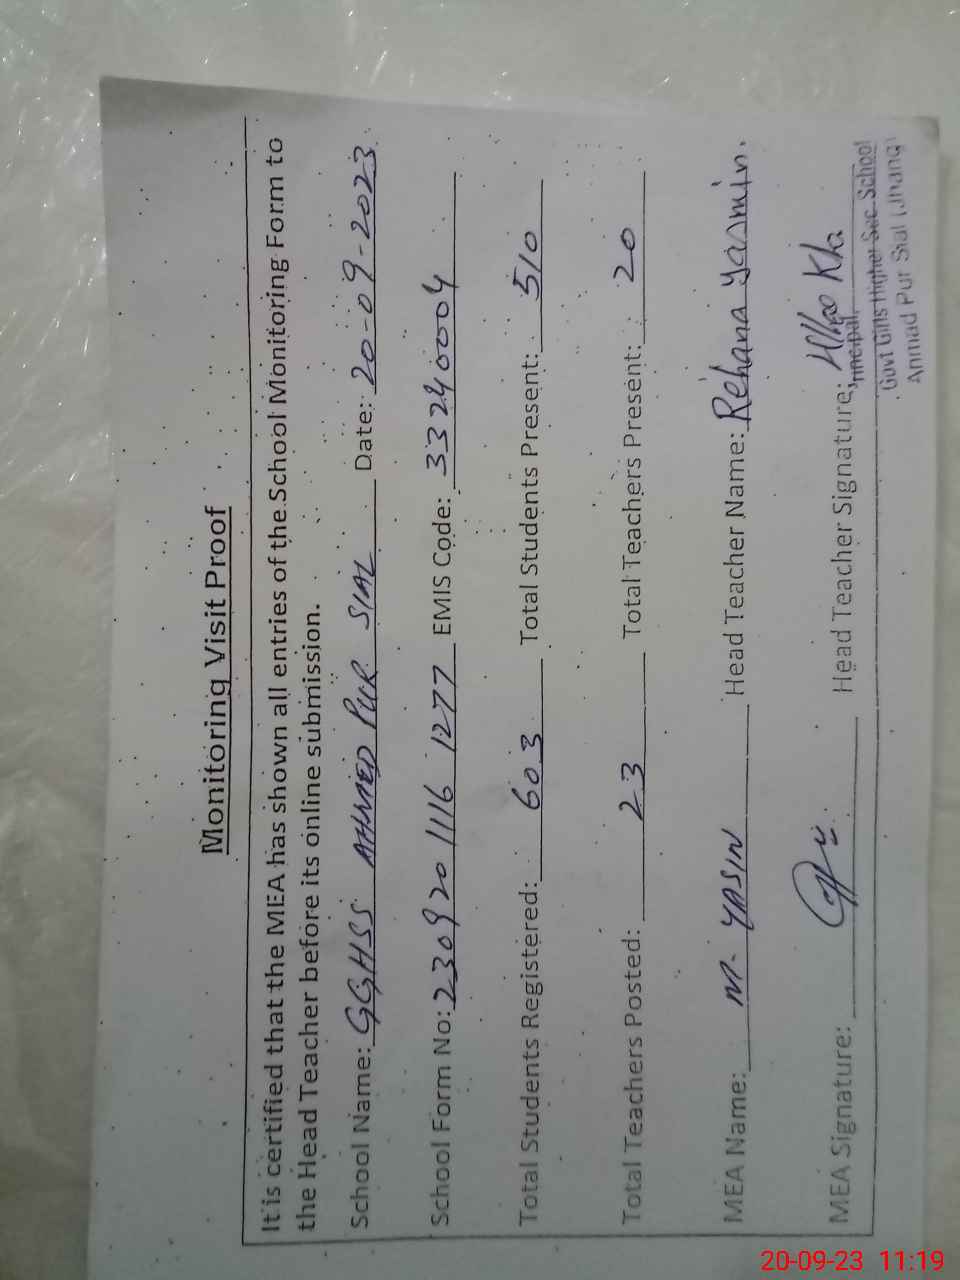 Monitoring Visit Proof
It is certified that the MEA has shown all entries of the School Monitoring Form to
the Head Teacher before its online submission.
School Name: GGHSS AHMED PUR SIAL Date: 20-09-2023
School Form No: 230920 1116 1277 EMIS Code: 33240004
Total Students Registered: 603 Total Students Present: 510
Total Teachers Posted: 23 Total Teachers Present: 20
MEA Name: M. YASIN Head Teacher Name: Rehana Yasmin.
MEA Signature: Head Teacher Signature:
Principal
Govt Girls Higher Sec School
Ahmad Pur Sial (Jhang)
20-09-23 11:19